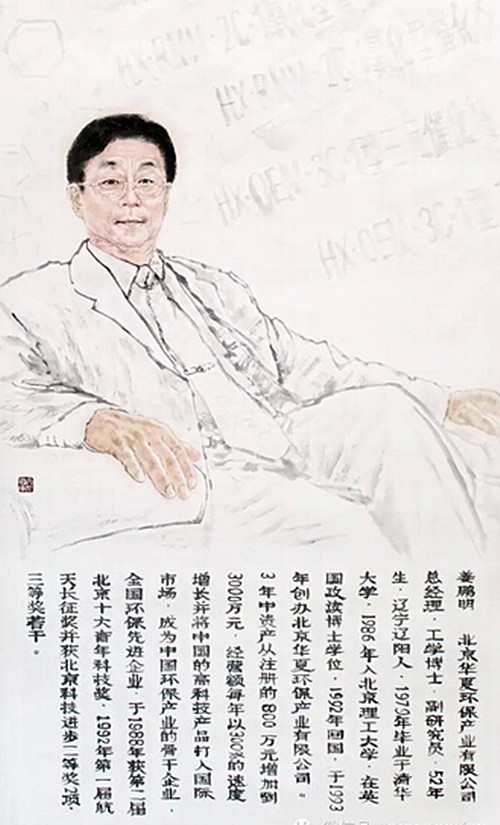 姜鹏明 北京华夏环保产业有限公司
总经理．工学博士．副研究员．52年
生．辽宁辽阳人．1979年毕业于清华
大学．1986年入北京理工大学．在英
国政读博士学位．1992年回国．于1993
年创办北京华夏环保产业有限公司。
3年中资产从注册的800万元增加到
3000万元．经营额每年以300%的速度
增长并将中国的高科技产品打入国际
市场．成为中国环保产业的骨干企业．
全国环保先进企业．于1988年获第二届
北京十大青年科技奖．1992年第一届航
天长征奖并获北京科技进步二等奖2项．
三等奖若干。